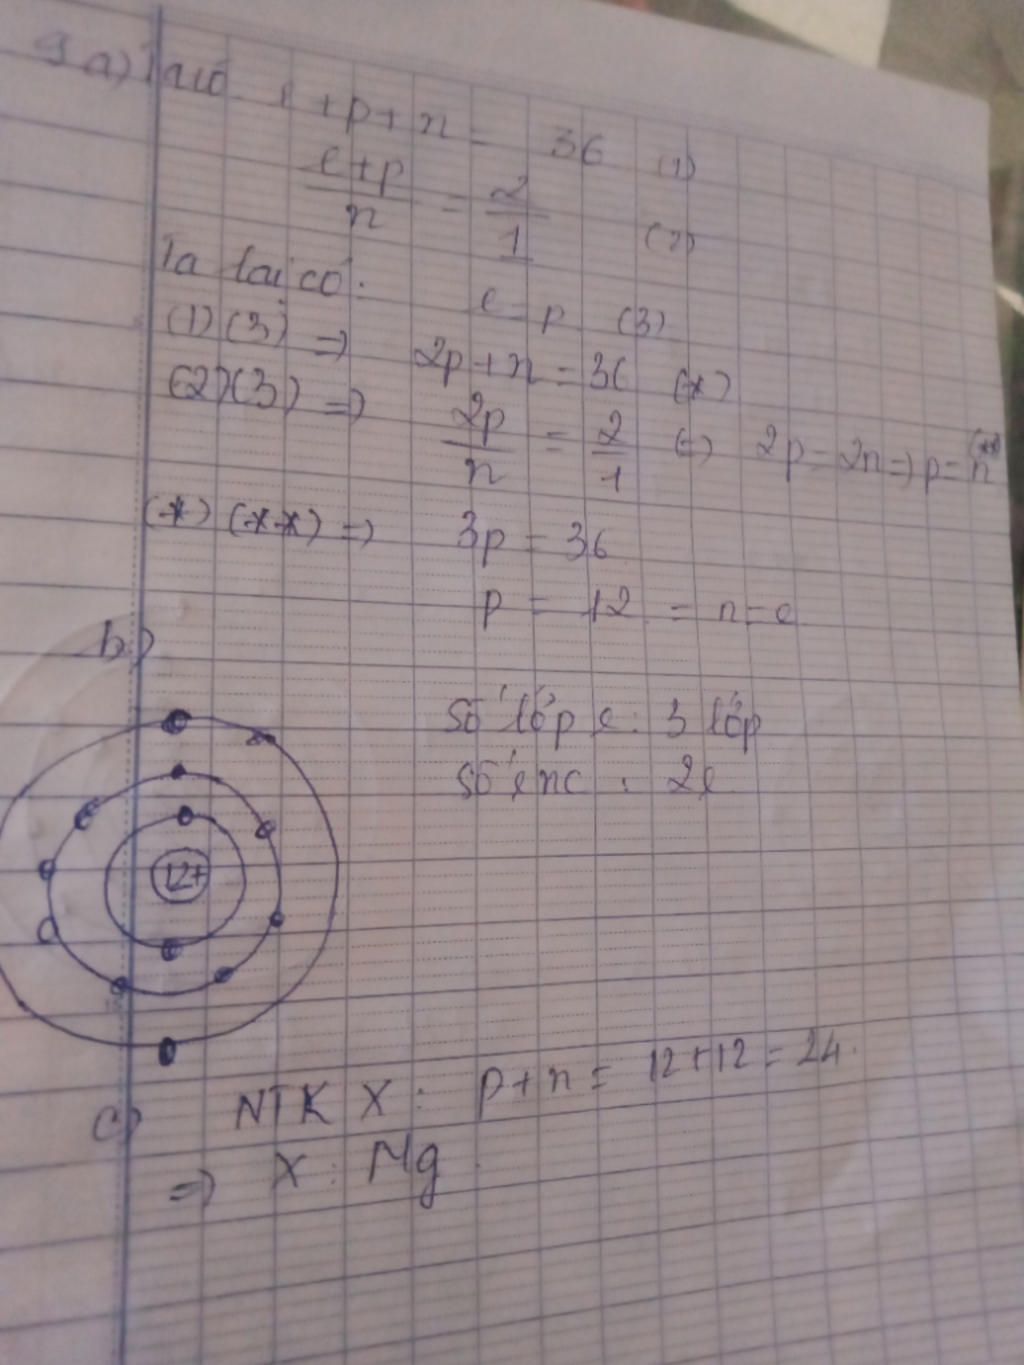 9 a) Ta có e + p + n = 36 (1)
e+p/n = 2/1 (2)
Ta lại có: e = p (3)
(1)(3) => 2p + n = 36 (*)
(2)(3) => 2p/n = 2/1 (=) 2p = 2n => p = n (**)
(*) (**) => 3p = 36
p = 12 = n = e
b)
Số lớp e: 3 lớp
Số e nc : 2e
12+
c) NTK X : p + n = 12 + 12 = 24.
=> X : Mg